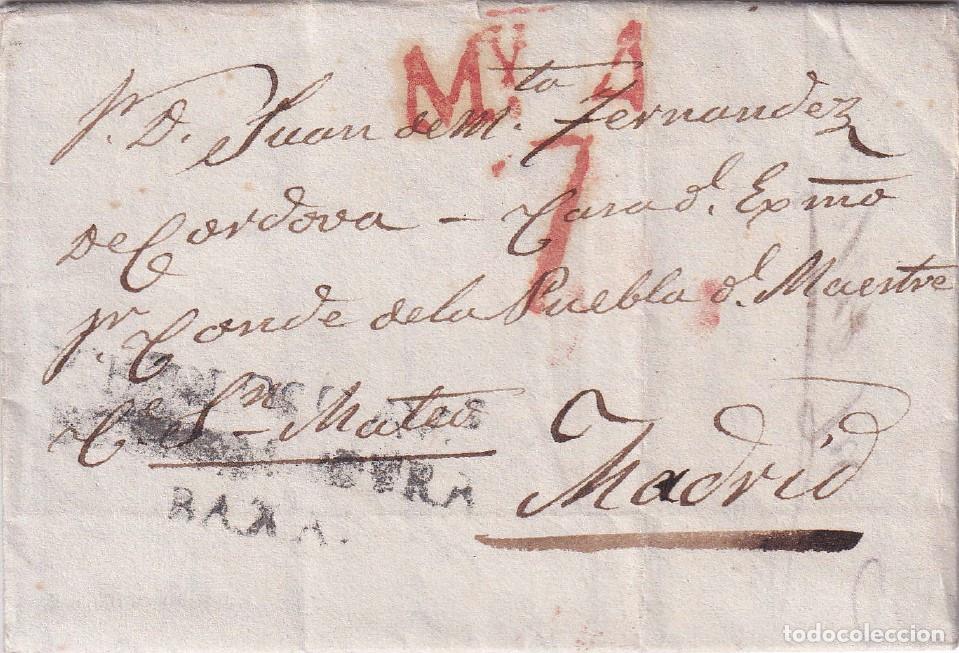 My. A
7
Sr. D. Juan de mta. Fernandez
de Cordova - Casa dl. Exmo
Sr. Conde de la Puebla dl. Maestre
Ce. Sn. Mateo
Madrid
BAXA.
todocoleccion